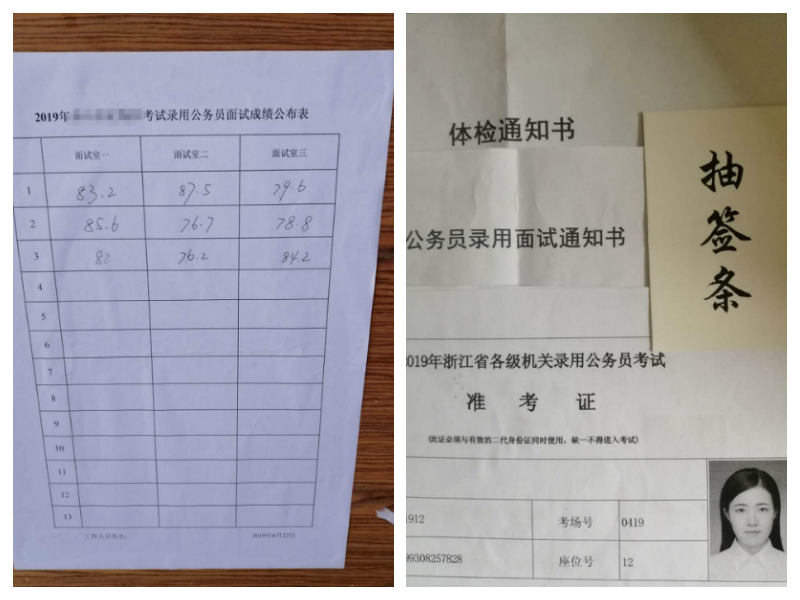 2019年考试录用公务员面试成绩公布表
面试室一 面试室二 面试室三
1 83.2 87.5 79.6
2 85.6 76.7 78.8
3 82 76.2 84.2
4
5
6
7
8
9
10
11
12
13
工作人员签名：
2019年6月22日
体检通知书
抽签条
公务员录用面试通知书
2019年浙江省各级机关录用公务员考试
准考证
(此证必须与有效的二代身份证同时使用，缺一不得进入考试)
1912 考场号 0419
99308257828 座位号 12